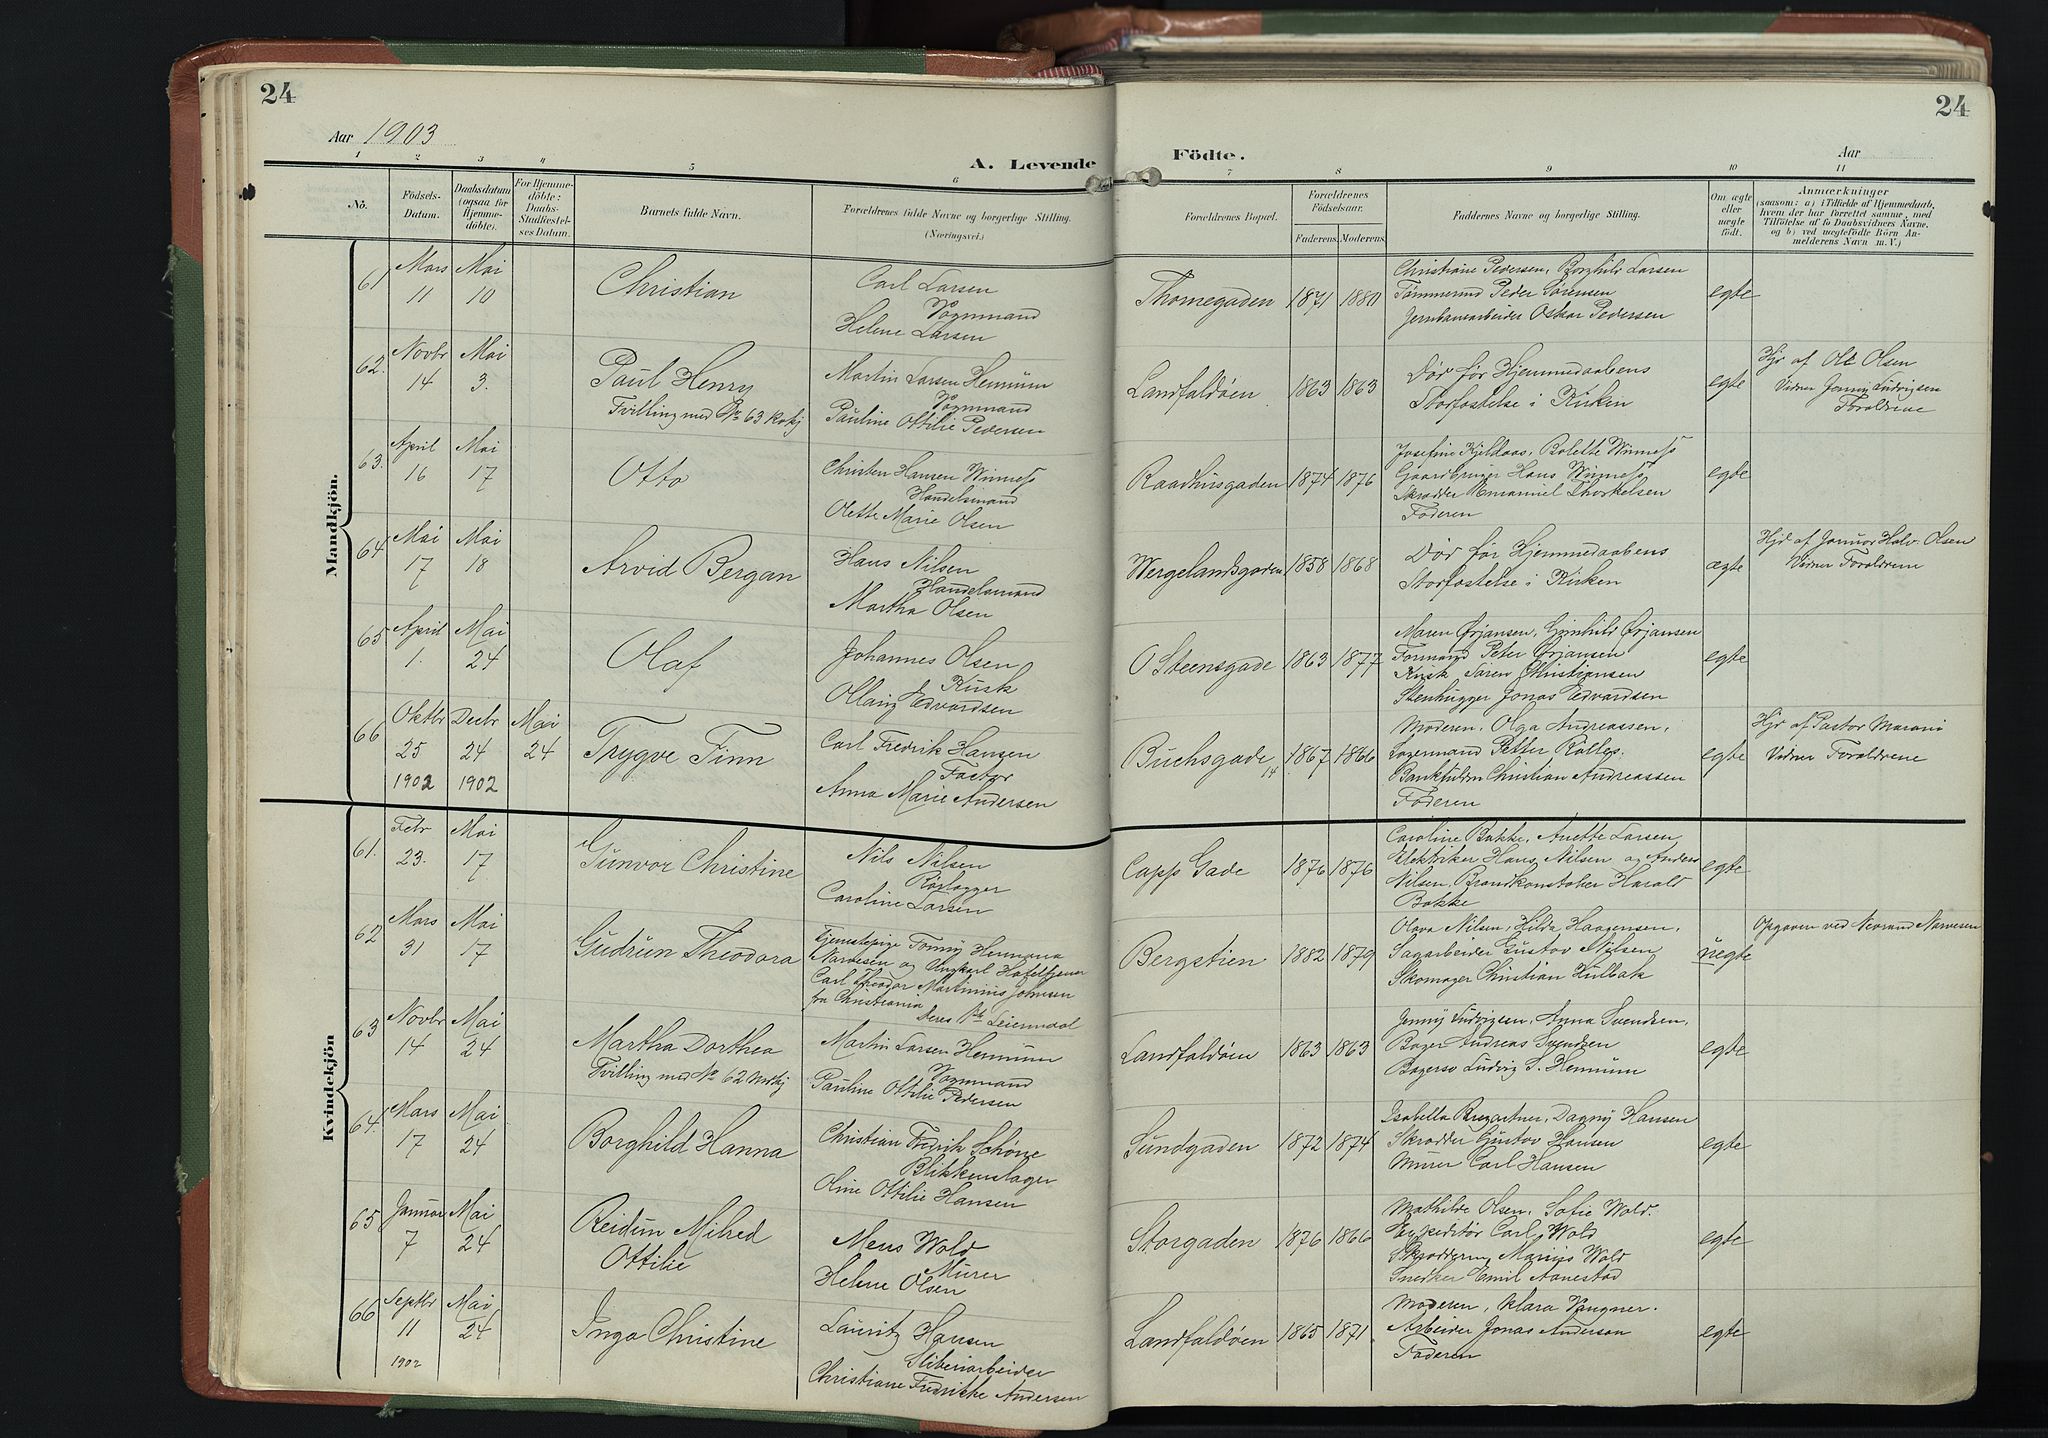 24
24
Aar 1903
A. Levende Födte.
Aar
1 2 3 4 5 6 7 8 9 10 11
No.
Födsels-Datum.
Daabsdatum (ogsaa for Hjemme-döbte).
For Hjemme-döbte: Daabs-Stadfæstel-ses Datum.
Barnets fulde Navn.
Forældrenes fulde Navne og borgerlige Stilling.
(Næringsvei.)
Forældrenes Bopæl.
Forældrenes Födselsaar.
Faderens. Moderens.
Faddernes Navne og borgerlige Stilling.
Om ægte eller uægte födt.
Anmærkninger
(saasom: a) i Tilfælde af Hjemmedaab, hvem der har forrettet samme, med Tilföielse af to Daabsvidners Navne, og b) ved uægtefödte Börn Anmelderens Navn m. V.)
Mandkjön.
61 Mars 11 Mai 10
Christian
Carl Larsen
Vognmand
Helene Larsen
Thornegaden 1871 1880
Christiane Pedersen, Borghild Larsen
Tømmermd Peder Sørensen
Jernbanearbeider Oskar Pedersen
egte
62. Novbr 14 Mai 3.
Paul Henry
Tvilling med No 63 Kvkj
Martin Larsen Hemnum
Vognmand
Pauline Ottilie Pedersen
Landfaldøen 1863 1863
Død før Hjemmedaabens
Storfestelse i Kirken
egte
Hjd af Ole Olsen
Vidner Jenny Ludvigsen
Foraldrene
63. April 16 Mai 17
Otto
Christen Hansen Winness
Handelsmand
Olette Marie Olsen
Raadhusgaden 1874 1876
Josefine Kjeldaas, Bolette Winness
Gaardbruger Hans Winness
Skrædder Emanuel Thorkelsen
Faderen
egte
64 Mai 17 Mai 18
Arvid Bergan
Hans Nilsen
Handelsmand
Martha Olsen
Wergelandsgaden 1858 1868
Død før Hjemmedaabens
Storfestelse i Kirken
ægte
Hjd af Jordmor Halv. Olsen
Vidner Foraldrene
65 April 1. Mai 24
Olaf
Johannes Olsen
Kusk
Edvardsen
O Steensgade 1863 1877
Maren Ørjansen, Gunhild Ørjansen
Formand Peter Ørjansen
Kusk Søren Christiansen
Stenhugger Jonas Edvardsen
egte
66 Oktbr 25 1902 Decbr 24 1902 Mai 24
Trygve Finn
Carl Fredrik Hansen
Factor
Anna Marie Andersen
Buchsgade 14 1867 1866
Moderen, Olga Andreassen,
Lagermand Petter
Bankfuldm Christian Andreassen
Faderen
egte
Hjd af Pastor
Vidner Foraldrene
Kvindekjön
61. Febr 23. Mai 17
Gunvor Christine
Nils Nilsen
Rørlægger
Caroline Larsen
Capp Gade 1876 1876
Caroline Bakke, Anette Larsen
Elektriker Hans Nilsen og Anders
Nilsen, Brandkonstabel Harald
Bakke
egte
62 Mars 31 Mai 17
Gudrun Theodora
Tjenestepige Tonny Hermana
Narvesen og Ungkarl
Carl Theodor Martinius Johnsen
fra Christiania
Deres 1ste Leiermaal
Bergstien 1882 1879
Olava Nilsen, Hilda Haagensen,
Sagarbeider Gustav Nilsen
Skomager Christian Hulbak
uegte
Opgaven ved Narvesen
63 Novbr 14 Mai 24
Martha Dorthea
Tvilling med No 62 Mndkj
Martin Larsen Hemnum
Vognmand
Pauline Ottilie Pedersen
Landfaldøen 1863 1863
Jenny Ludvigsen, Anna Svendsen,
Bager Andreas Svendsen
Bagersv Ludvig L. Hemnum
egte
64. Mars 17 Mai 24
Borghild Hanna
Christian Fredrik Schøne
Blikkenslager
Oline Ottilie Hansen
Sundgaden 1872 1874
Isabella Dagny Hansen
Skrædder Gustav Hansen
Murer Carl Hansen
egte
65 Januar 7 Mai 24
Reidun Milred
Ottilie
Mens Wold
Murer
Helene Olsen
Storgaden 1876 1866
Mathilde Olsen, Sofie Wold.
Expeditør Carl Wold
Skræddersv Marius Wold
Snedker Emil Aanestad
egte
66 Septbr 11 1902 Mai 24
Inga Christine
Lauritz Hansen
Sliberiarbeider
Christiane Fredrikke Andersen
Landfaldøen 1865 1871
Moderen, Klara Wangner.
Arbeider Jonas Anderson
Faderen
egte